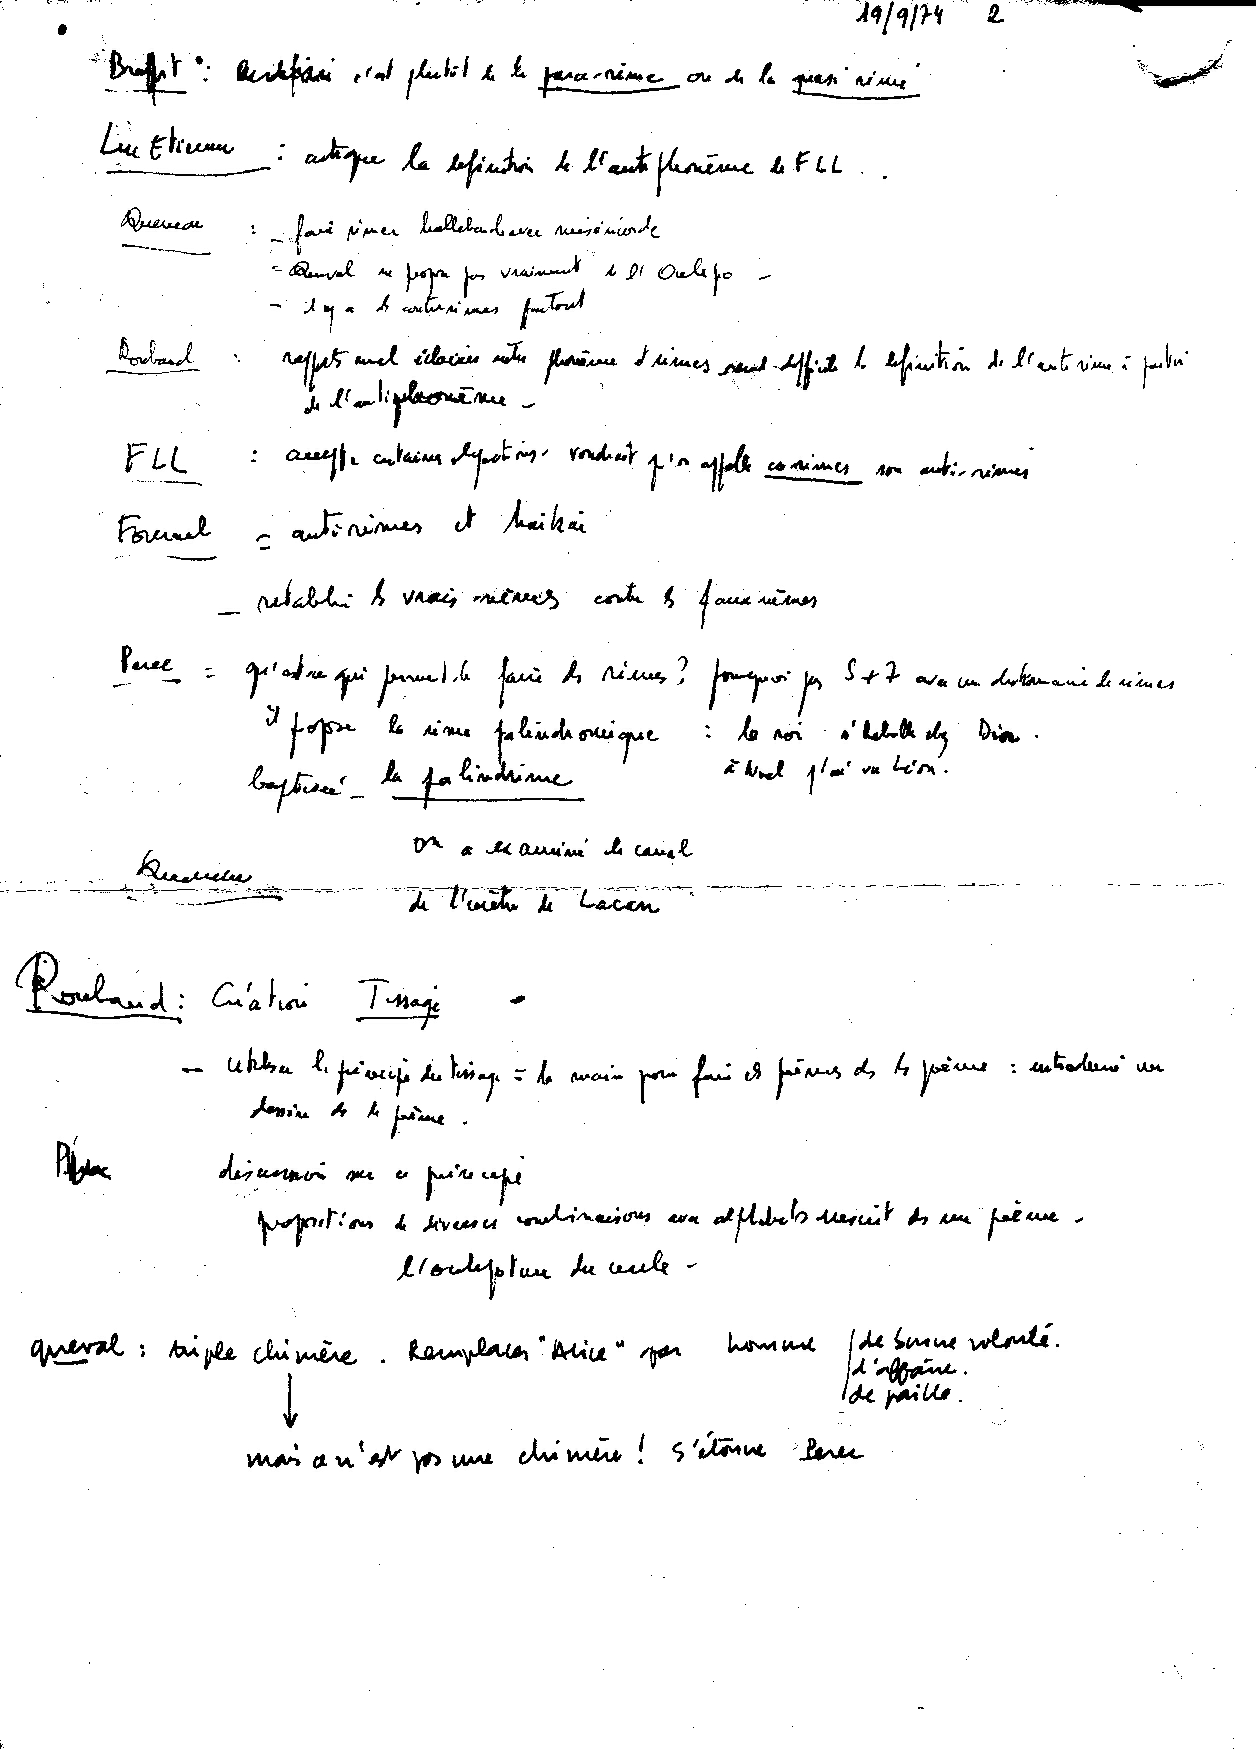 19/9/74 2
Braffort : c'est plutôt de la para-rime ou de la quasi rime
Luc Etienne : critique la définition de l'antiphonème de FLL.
Queneau : - faire rimer hallebarde avec miséricorde
- Queval ne propose pas vraiment à l'Oulipo -
- il y a des contrerimes partout
Roubaud : rapports mal éclaircis entre phonème et rimes rend difficile la définition de l'antirime à partir
de l'antiphonème -
FLL : accepte certaines objections. voudrait qu'on appelle corimes non anti-rimes
Fournel = antirimes et haïkaï
- rétablir les vraies mêmes contre les faux mêmes
Perec = qu'est-ce qui permet de faire des rimes ? pourquoi pas S+7 avec un dictionnaire de rimes
il propose la rime palindromique : le roi s'habille chez Dior.
à Noel j'ai vu Léon.
baptisée - la palindrime
on a examiné le canal
de l'uretre de Lacan
Roubaud : Création Tissage -
- utiliser le principe du tissage = la main pour faire des poèmes ds le poème : introduire un
dessin ds le poème.
discussion sur ce principe
propositions de diverses combinaisons avec alphabets ds un poème -
queval : triple chimère. Remplacer "Alice" par homme / de bonne volonté.
d'affaire.
de paille.
mais ce n'est pas une chimère ! s'étonne Perec